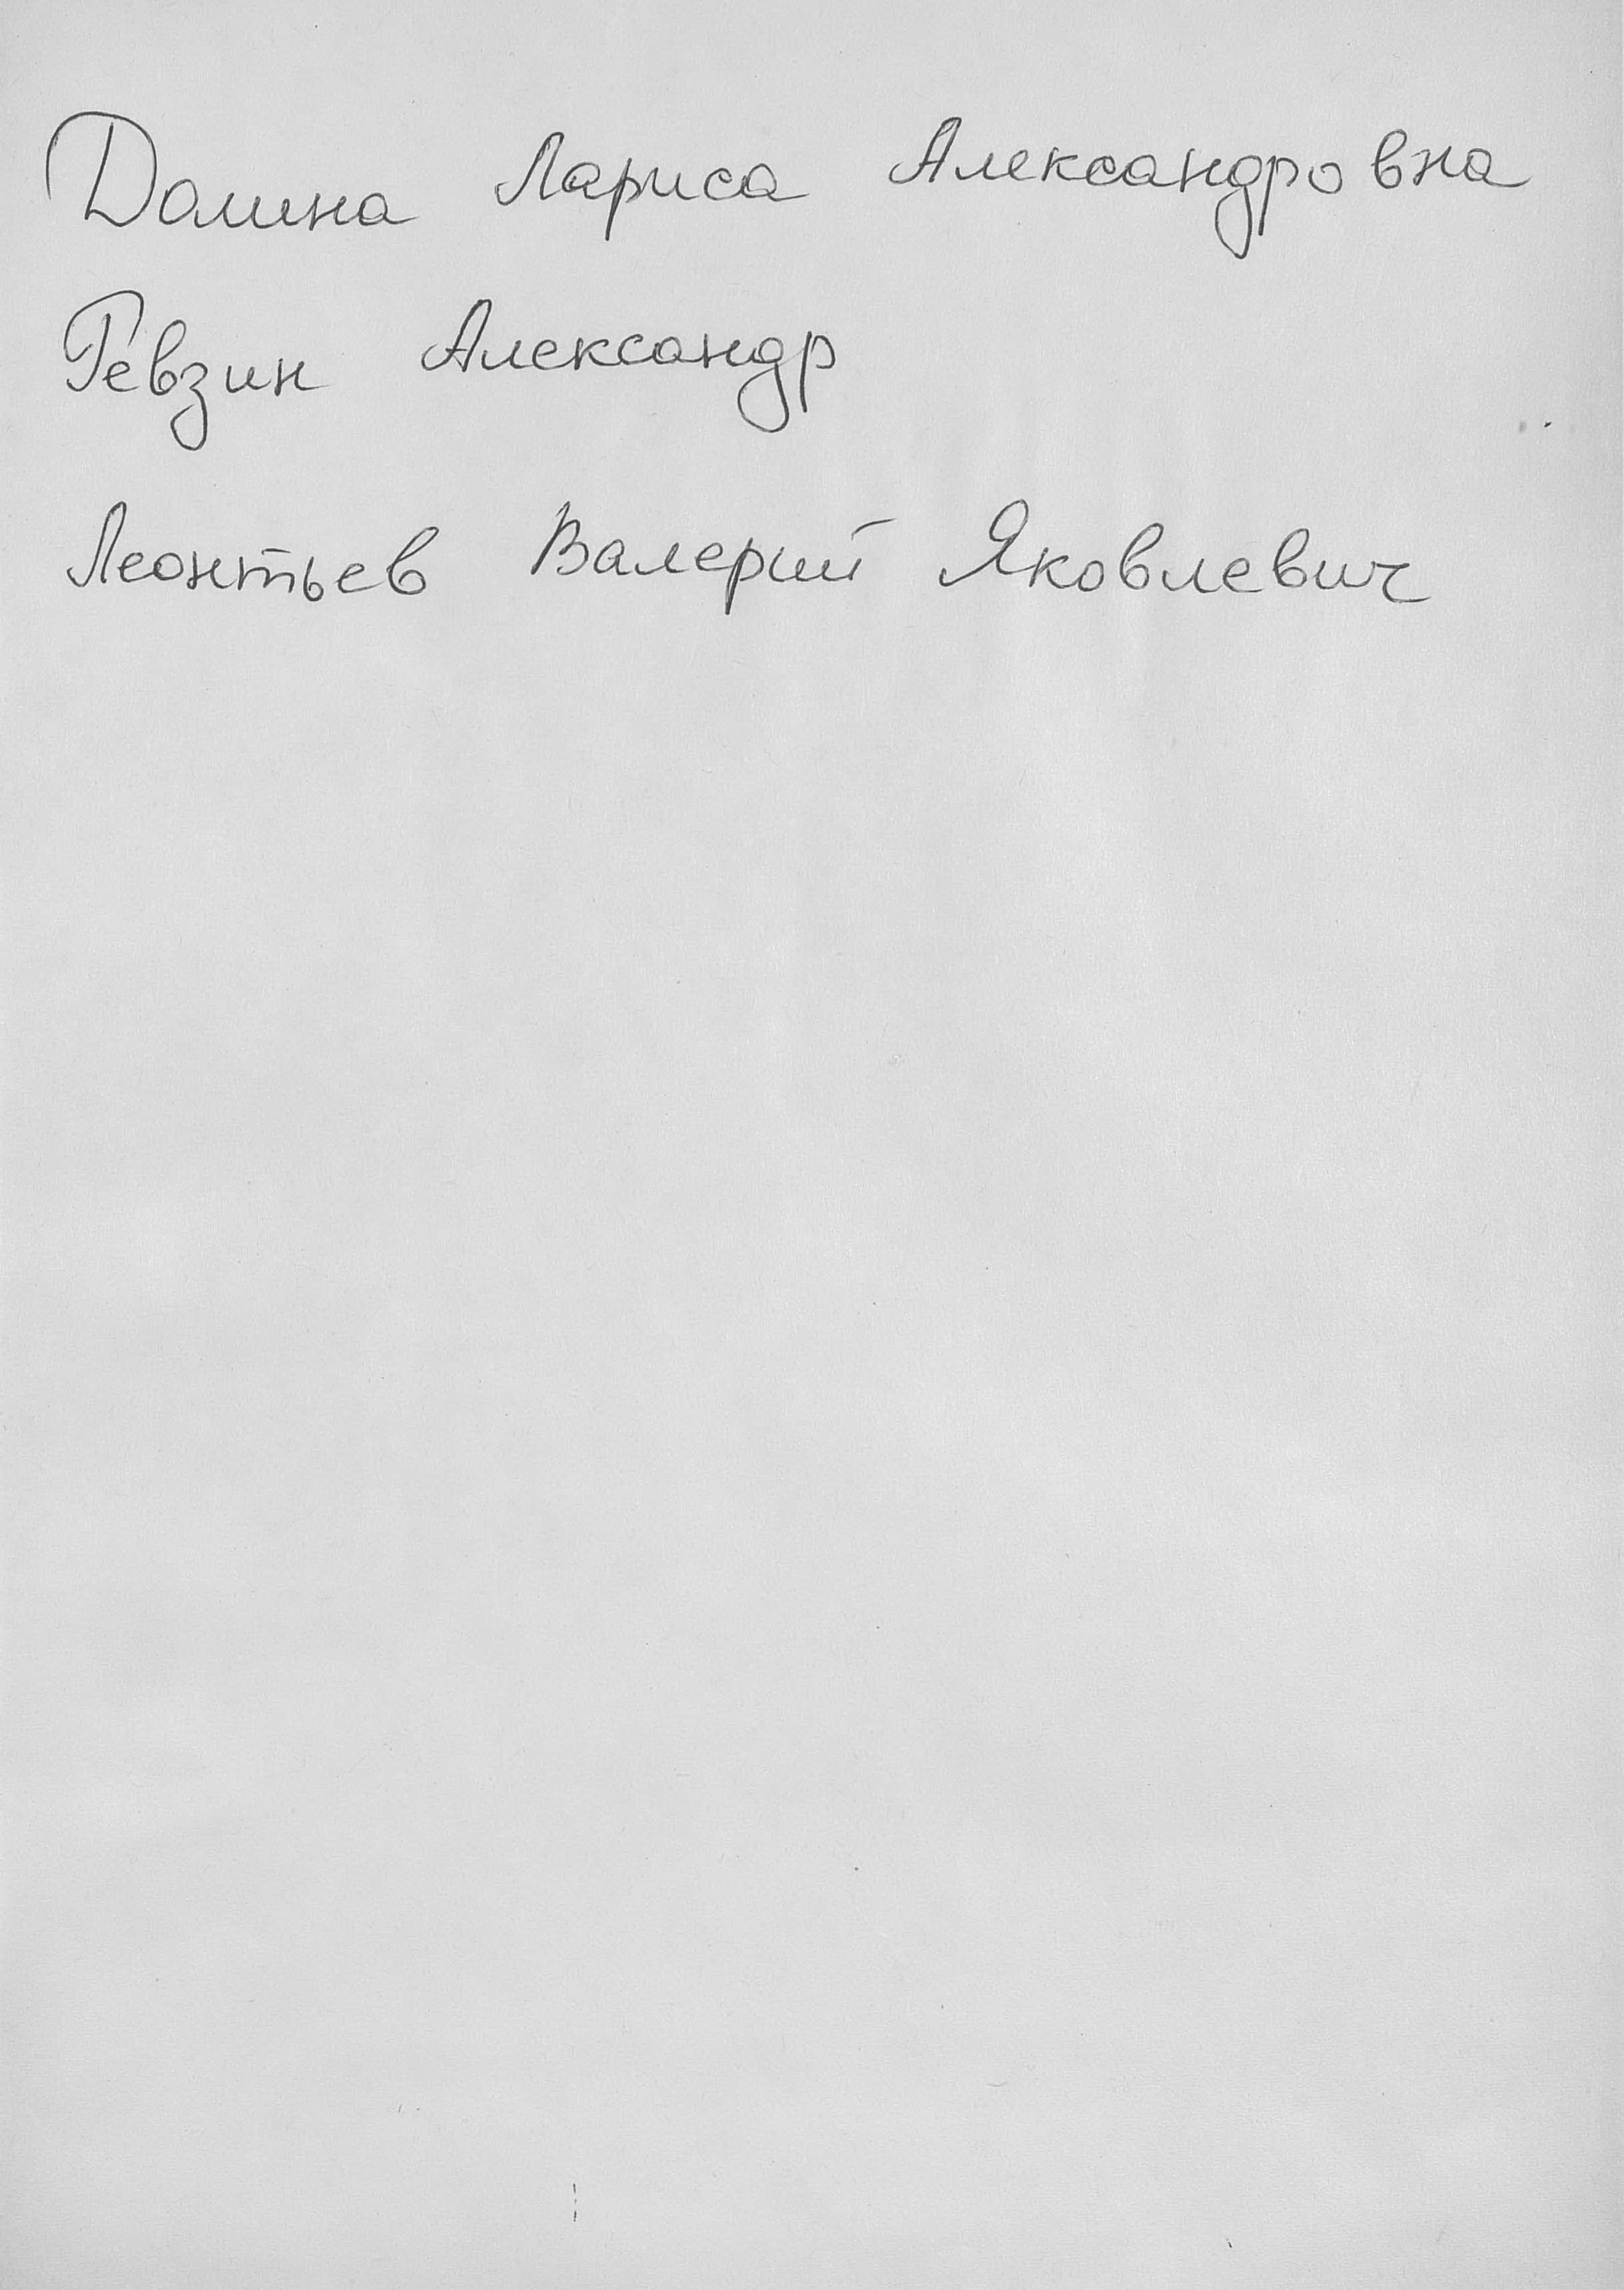 Долина Лариса Александровна
Ревзин Александр
Леонтьев Валерий Яковлевич